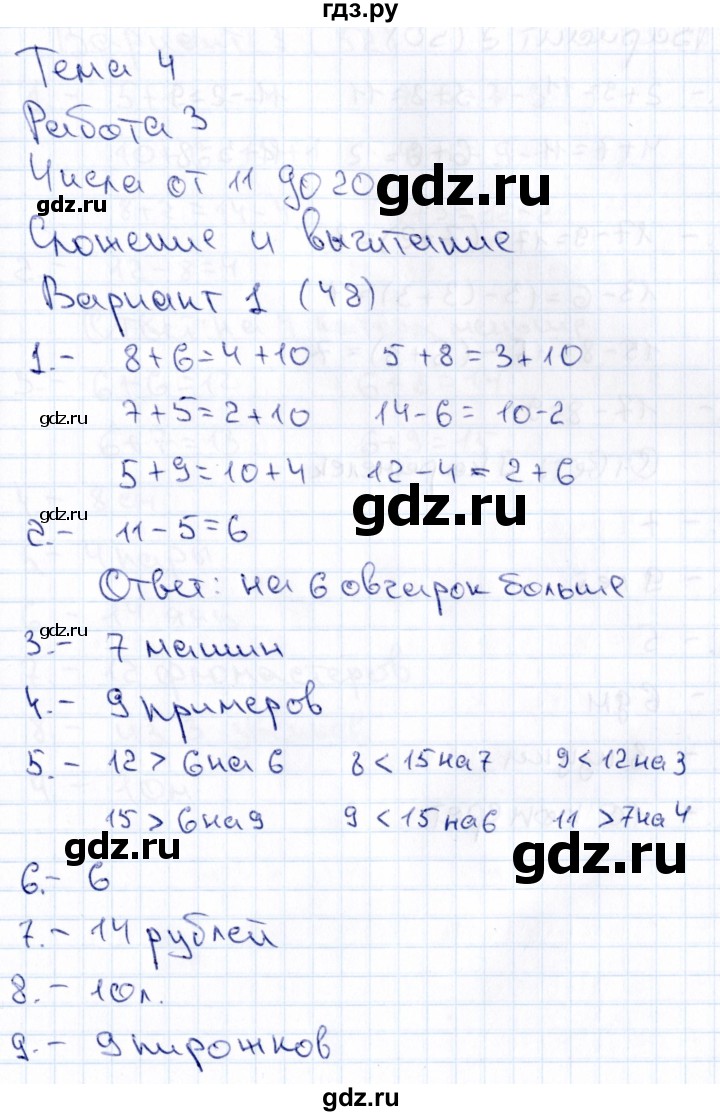 гдз.ру
Тема 4
Работа 3
Числа от 11 до 20
gdz.ru
gdz.ru
Сложение и вычитание
Вариант 1 (48)
1.- 8+6=4+10 5+8=3+10
gdz.ru 7+5=2+10 14-6= 10-2
5+9=10+4 12-4=2+6
gdz.ru
gdz.ru
2.- 11-5=6
Ответ: на 6 овчарок больше
gdz.ru
3.- 7 машин
4.- 9 примеров
5.- 12 > 6 на 6 8 < 15 на 7 9 < 12 на 3
15 > 6 на 9 9 < 15 на 6 11 > 7 на 4
gdz.ru
gdz.ru
6.- 6
7.- 14 рублей
8.- 10л.
9.- 9 пирожков
gdz.ru